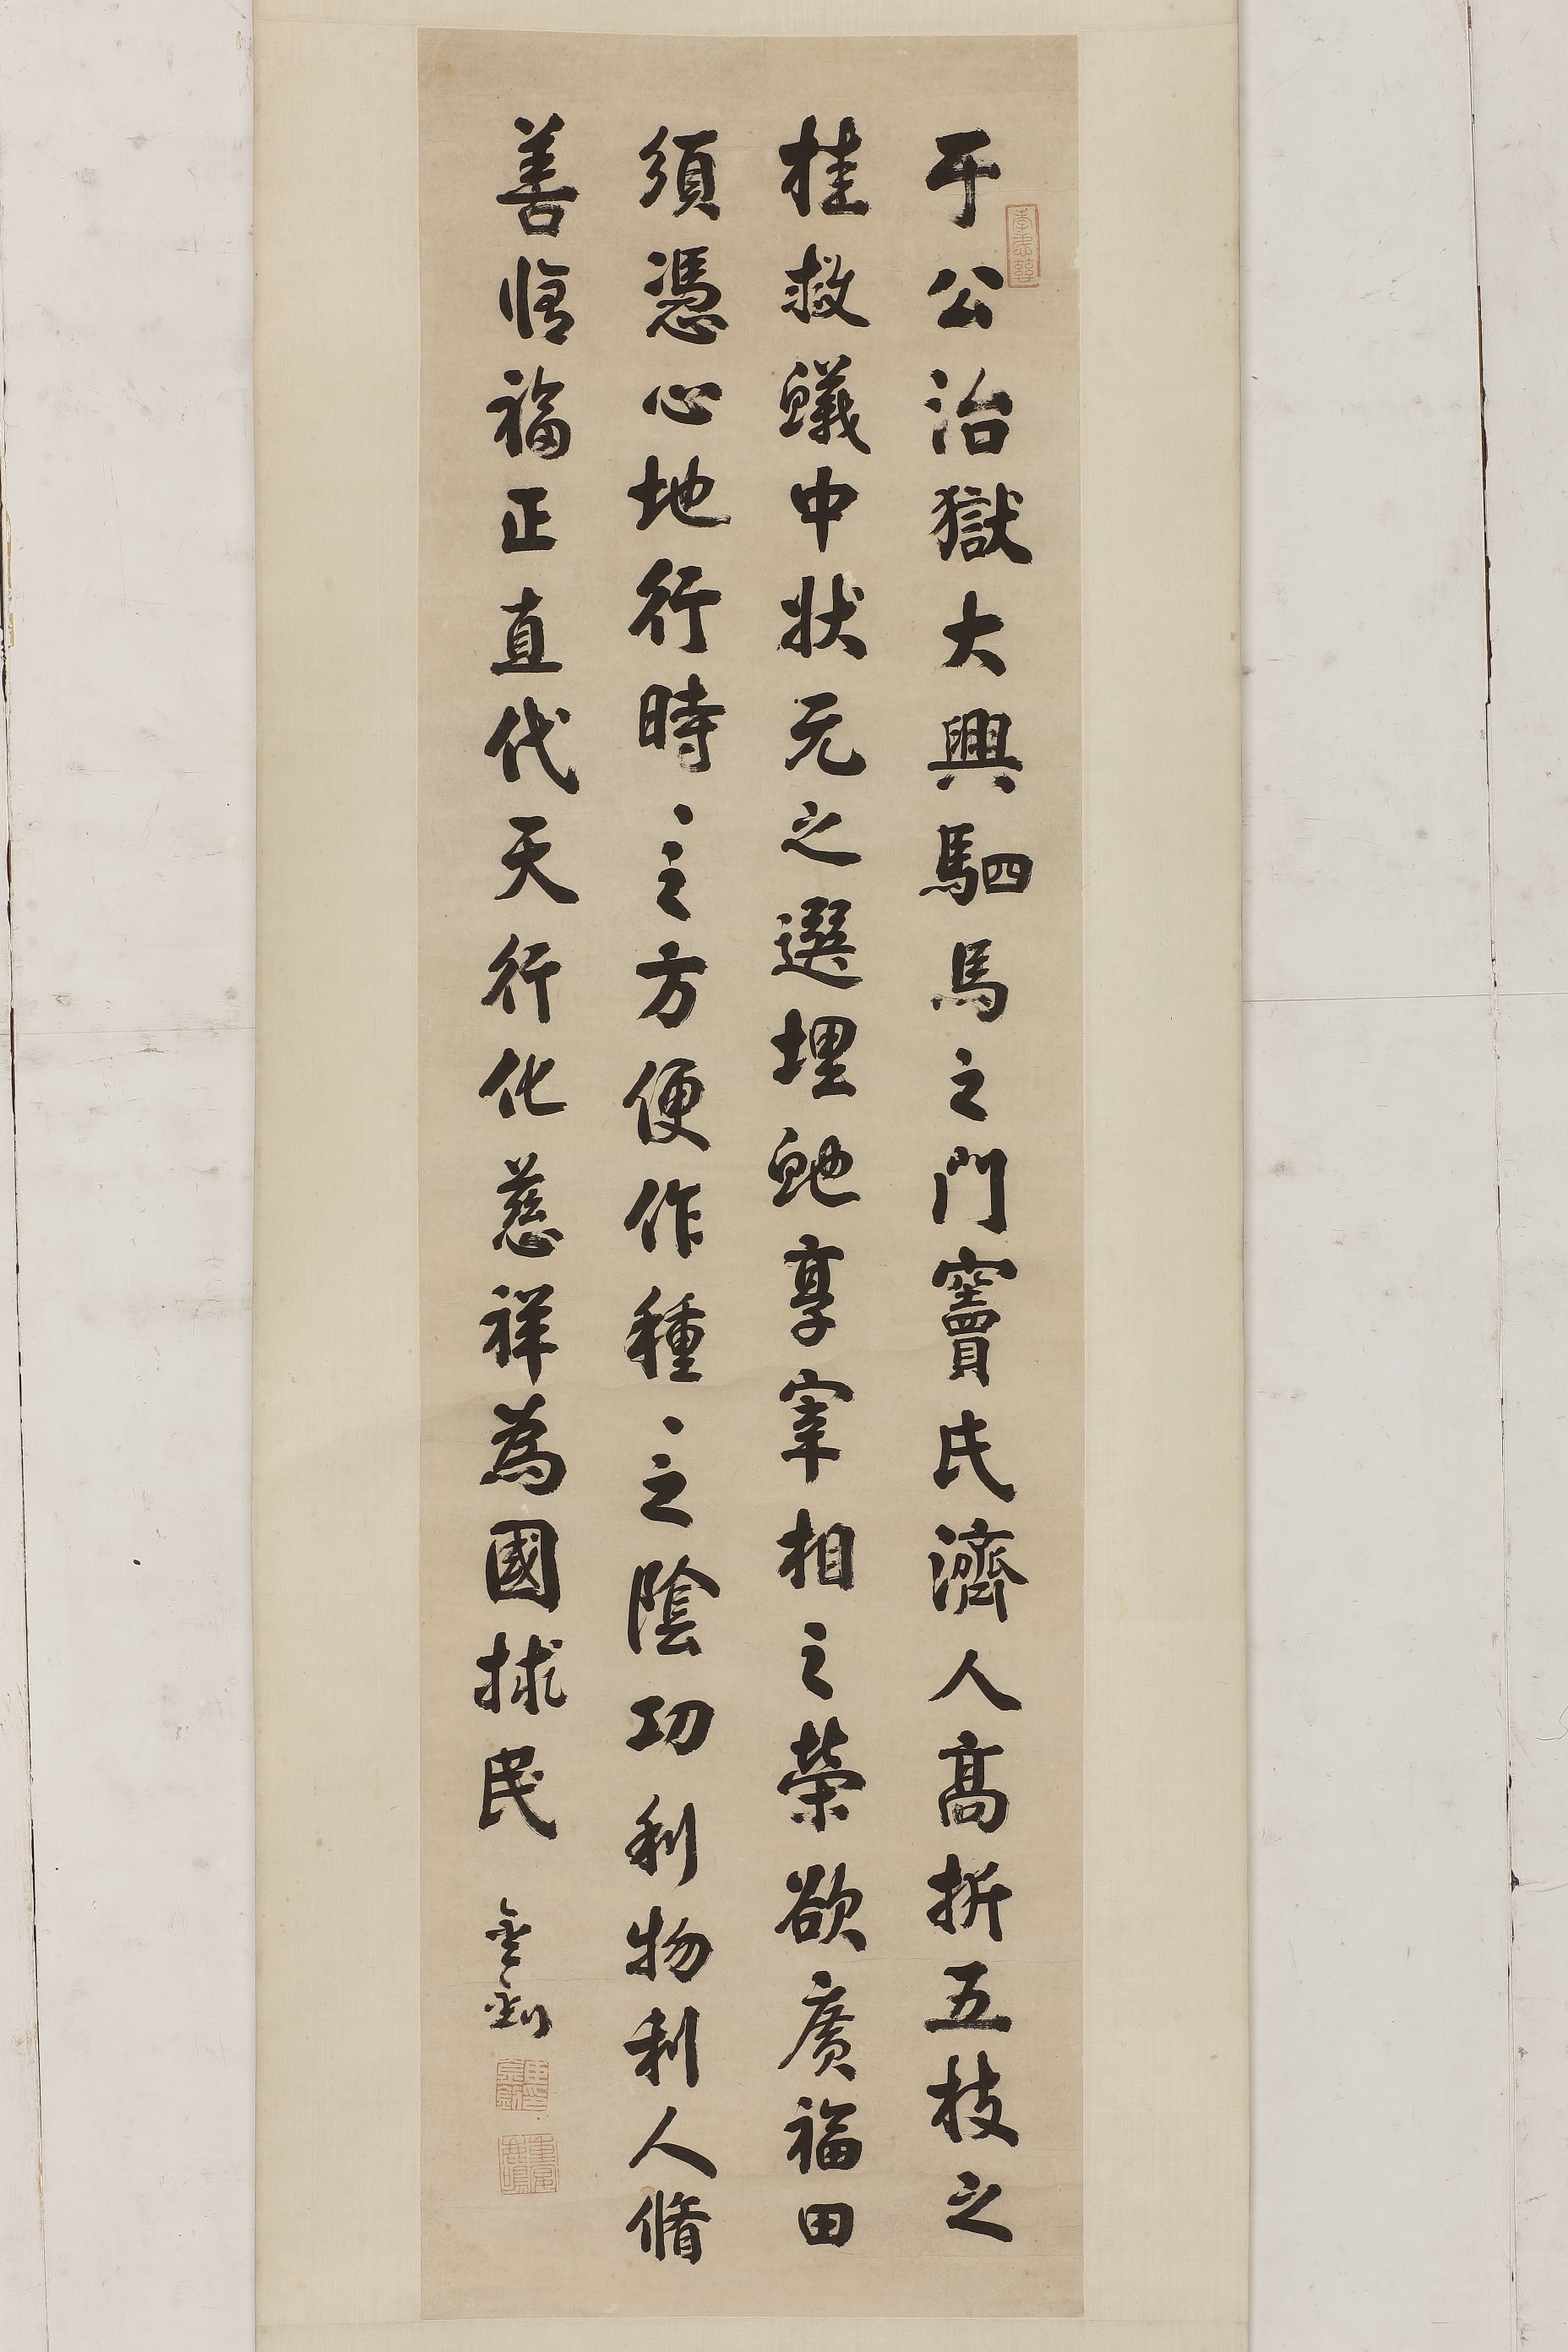 于公治獄大興駟馬之門竇氏濟人高折五枝之
桂救蟻中狀元之選埋虵享宰相之榮欲廣福田
須憑心地行時〻之方便作種〻之陰功利物利人脩
善脩福正直代天行化慈祥為國捄民